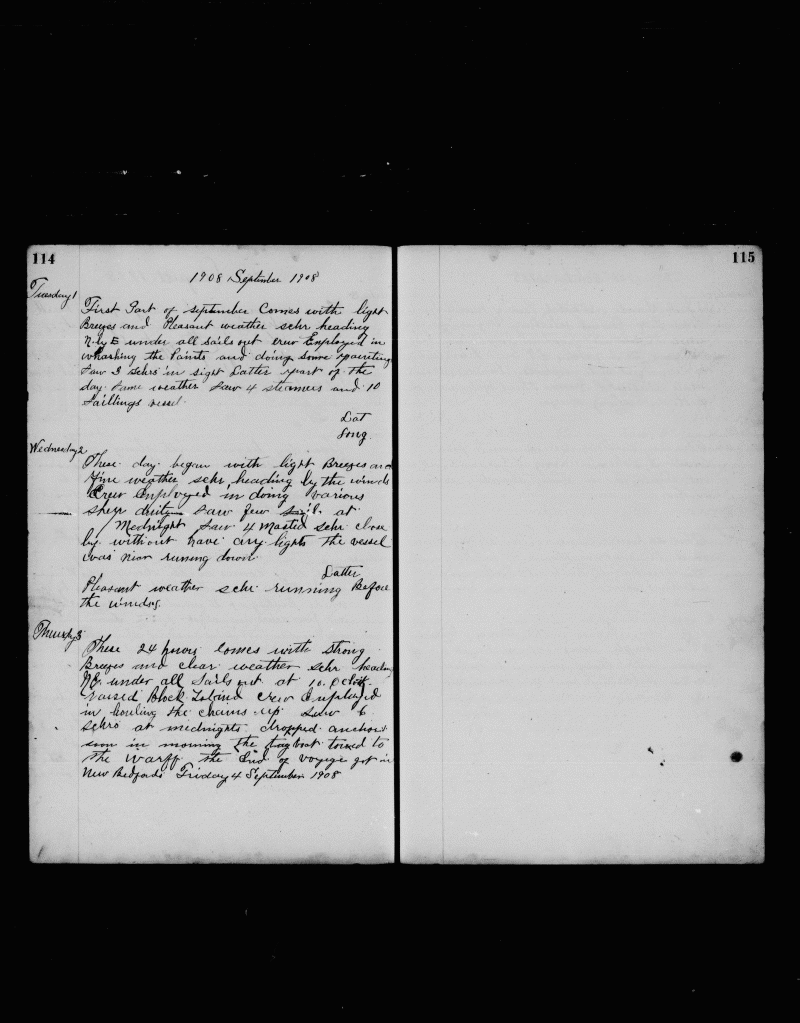 114
1908 September 1908
Tuesday 1
First Part of september Comes with light
Breezes and Pleasant weather schr heading
N by E under all Sails out crew Employed in
wharshing the Paints and doing some painting
Saw 3 schrs in sight Latter part of the
day same weather Saw 4 steamers and 10
Saillings vessel.
Lat
Long
Wednesday 2
These day began with light Breezes and
fine weather schr heading by the winds
Crew Employed in doing various
dutys Saw few sails at
Mednight Saw 4 Masted schr close
by without have any lights the vessel
was near runing down
Latter
Pleasant weather schr running Before
the winds.
Thursday 3
These 24 hours Comes with Strong
Breezes and clear weather schr heading
NE. under all Sails out at 10. Oclock
raised Block Island Crew Employed
in howling the Chains up Saw 6
schrs at midnights dropped anchor
soon in morning the tugboat towed to
the warff the End of voyage got in
New Bedfords Friday 4 September 1908
115